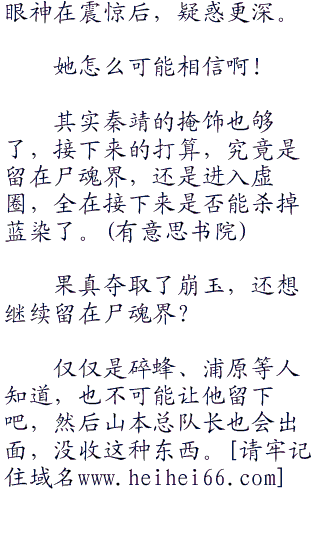 眼神在震惊后，疑惑更深。
她怎么可能相信啊！
其实秦靖的掩饰也够
了，接下来的打算，究竟是
留在尸魂界，还是进入虚
圈，全在接下来是否能杀掉
蓝染了。(有意思书院)
果真夺取了崩玉，还想
继续留在尸魂界？
仅仅是碎蜂、浦原等人
知道，也不可能让他留下
吧，然后山本总队长也会出
面，没收这种东西。[请牢记
住域名www.heihei66.com]